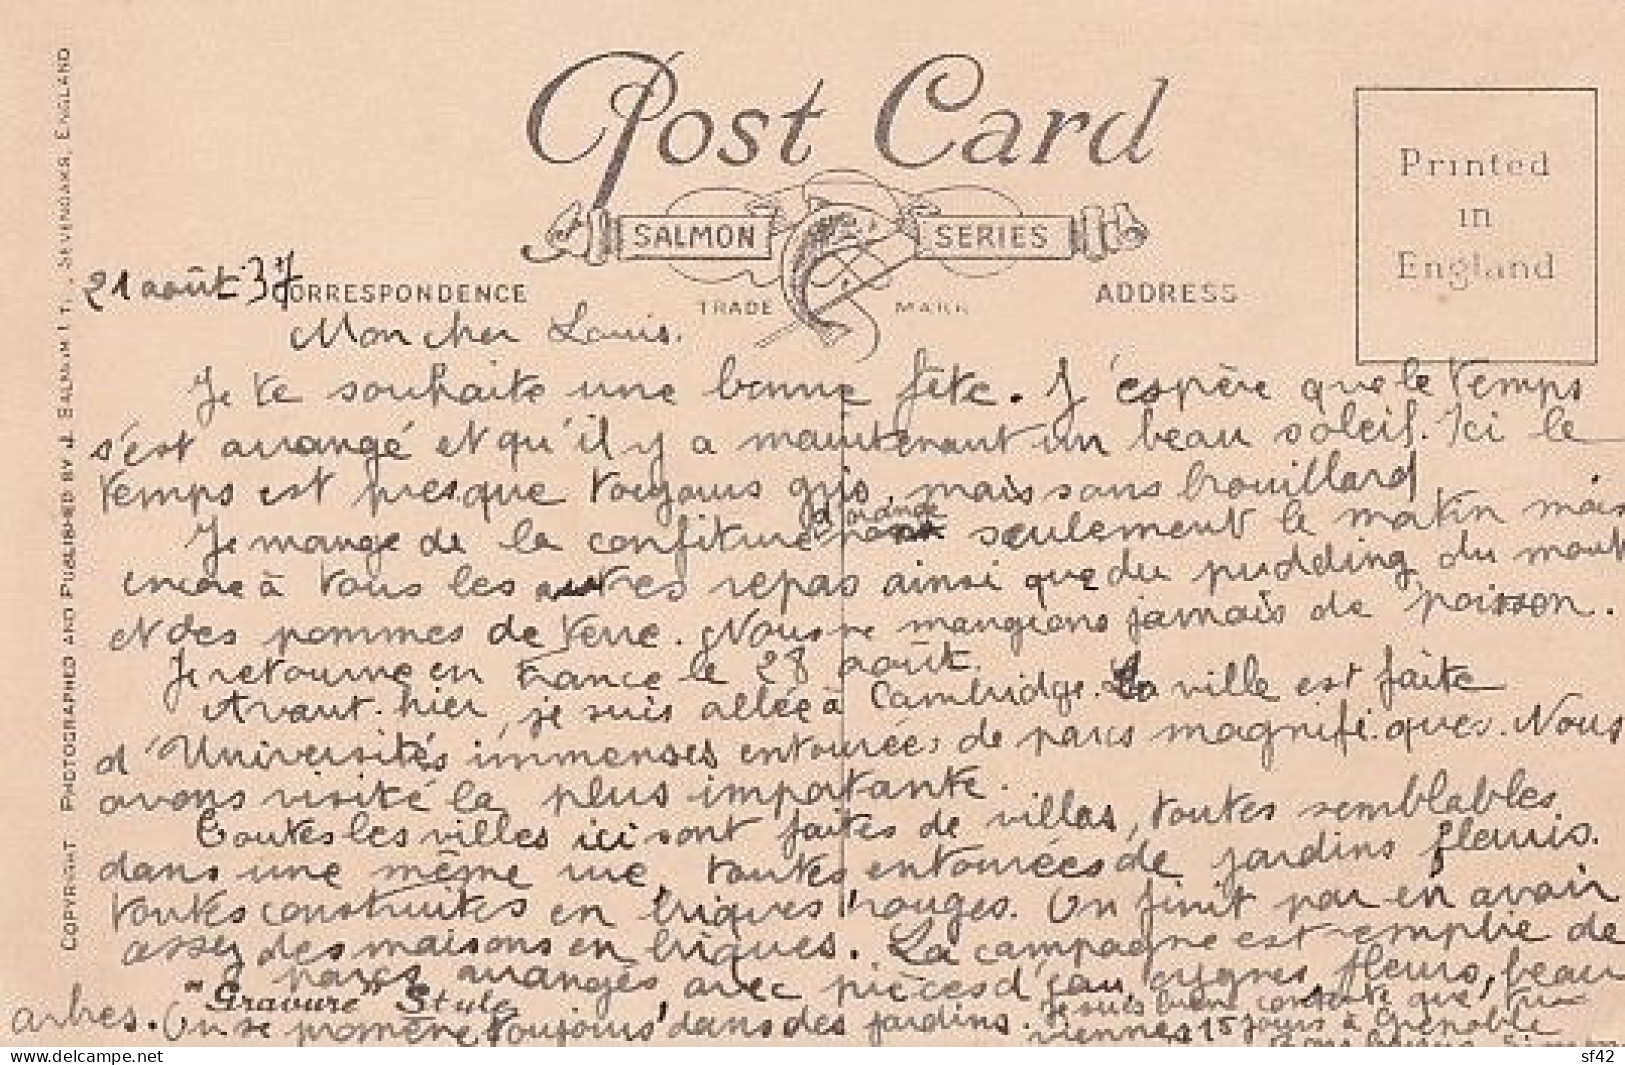 Post Card
SALMON SERIES
TRADE MARK
Printed
in
England
CORRESPONDENCE
ADDRESS
COPYRIGHT PHOTOGRAPHED AND PUBLISHED BY J. SALMON LTD., SEVENOAKS, ENGLAND
21 août 37
Mon cher Louis.
Je te souhaite une bonne fête. J'espère que le temps
s'est arrangé et qu'il y a maintenant un beau soleil. Ici le
temps est presque toujours gris, mais sans brouillard
d'orange
Je mange de la confiture non seulement le matin mais
encore à tous les autres repas ainsi que du pudding du mouton
et des pommes de terre. Nous ne mangeons jamais de poisson.
Je retourne en France le 28 août.
Avant-hier, je suis allée à Cambridge. La ville est faite
d'Universités immenses entourées de parcs magnifiques. Nous
avons visité la plus importante.
Toutes les villes ici sont faites de villas, toutes semblables
dans une même rue, toutes entourées de jardins fleuris.
toutes construites en briques rouges. On finit par en avoir
assez des maisons en briques. La campagne est remplie de
parcs arrangés avec pièces d'eau cygnes, fleurs, beaux
arbres. On se promène toujours dans des jardins. Je suis bien contente que tu
viennes 15 jours à Grenoble
"Gravure" Style
Bons baisers Simone
delcampe.net
sf42